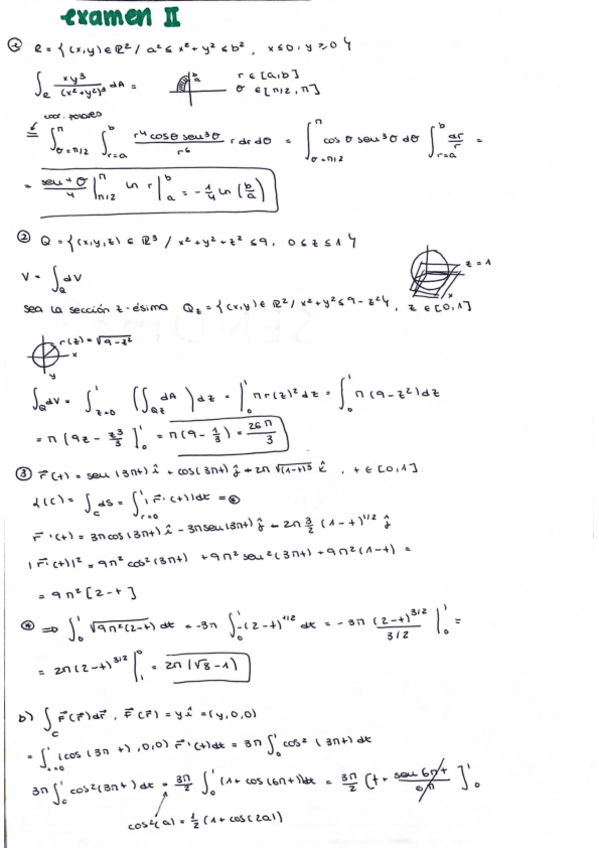 examen II
① R = {(x,y) ∈ ℝ² / a² ≤ x² + y² ≤ b², x ≤ 0, y ≥ 0}
∫_R xy³/(x²+y²)³ dA = r ∈ [a,b]
θ ∈ [π/2, π]
coor. polares
= ∫_{θ=π/2}^{π} ∫_{r=a}^{b} r⁴cosθ sen³θ / r⁶ r dr dθ = ∫_{θ=π/2}^{π} cosθ sen³θ dθ ∫_{r=a}^{b} dr/r =
= sen⁴θ/4 |_{π/2}^{π} ln r |_a^b = -1/4 ln (b/a)
② Q = {(x,y,z) ∈ ℝ³ / x² + y² + z² ≤ 9, 0 ≤ z ≤ 1}
V = ∫_Q dV
z = 1
x
sea la sección z-ésima Q_z = {(x,y) ∈ ℝ² / x² + y² ≤ 9 - z²}, z ∈ [0,1]
r(z) = √(9-z²)
x
y
∫_Q dV = ∫_{z=0}^{1} (∫∫_{Qz} dA) dz = ∫_0^1 π r(z)² dz = ∫_0^1 π (9-z²) dz
= π [9z - z³/3]_0^1 = π (9 - 1/3) = 26π/3
③ r⃗(t) = sen(3πt) î + cos(3πt) ĵ + 2π √(1-t)³ k̂, t ∈ [0,1]
L(C) = ∫_C ds = ∫_{t=0}^{1} |r⃗'(t)| dt = ⊛
r⃗'(t) = 3π cos(3πt) î - 3π sen(3πt) ĵ - 2π 3/2 (1-t)^{1/2} ĵ
|r⃗'(t)|² = 9π² cos²(3πt) + 9π² sen²(3πt) + 9π² (1-t) =
= 9π² [2-t]
⊛ ⇒ ∫_0^1 √(9π²(2-t)) dt = -3π ∫_0^1 -(2-t)^{1/2} dt = -3π (2-t)^{3/2} / 3/2 |_0^1 =
= 2π (2-t)^{3/2} |_1^0 = 2π (√8 - 1)
b) ∫_C F⃗(r⃗) dr⃗, F⃗(r⃗) = y î = (y,0,0)
= ∫_{t=0}^{1} (cos(3πt),0,0) r⃗'(t) dt = 3π ∫_0^1 cos²(3πt) dt
3π ∫_0^1 cos²(3πt) dt = 3π/2 ∫_0^1 (1 + cos(6πt)) dt = 3π/2 [t + sen 6πt / 6π]_0^1
cos²(a) = 1/2 (1 + cos(2a))